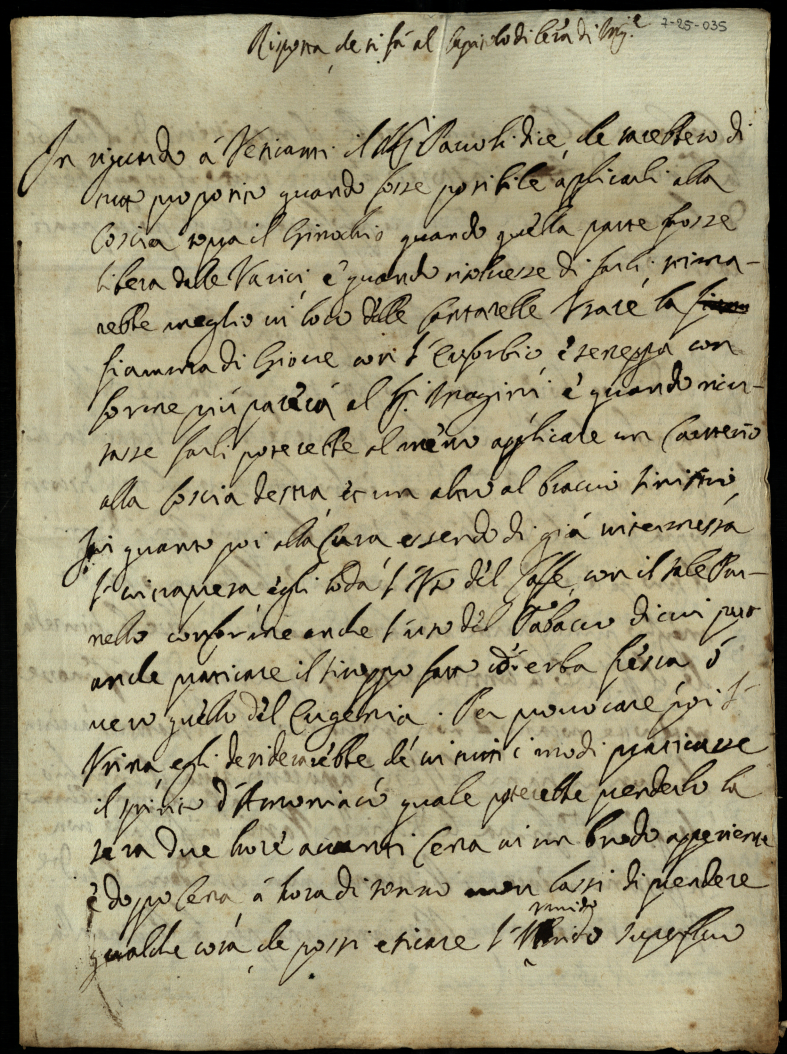 7-25-035
Risposta che si fà al Capitolo di lèra di
In riguardo à Vesicanti il Sig Pauoli dice, che sarebbero di
tutto proposito quando fosse possibile applicarli alla
Coscia sopra il Ginochio quando quella parte fosse
libera dalle Varici, e quando risoluesse di farli, stima-
rebbe meglio in loco delle Cantarelle Vsare la
fiamma di Gioue con l'Euforbio è senappa con
forme più parerà al Sig. Magini è quando ricu-
sasse farli poterebbe almeno applicare un Cauterio
alla Coscia destra et un altro al braccio sinistro
In quanto poi alla Cura essendo di già intermessa
l' intrapresa egli loda l'Vso dèl Caffe, con il sale
conforme anche l'uso dèl Tabacco di cui puo
anche praticare il siroppo fatto con erba fresca ò
uero quèllo dèl . Per prouocare poi l'
Vrina egli desiderarèbbe che in tutti i modi praticasse
il spirito d'Amoniaco quale poterebbe prenderlo la
sera due hore auanti Cena in un brodo apperiente
è doppo Cena à hora di sonno non lassi di prendere
umido
qualche cosa che possi eticare l' superfluo